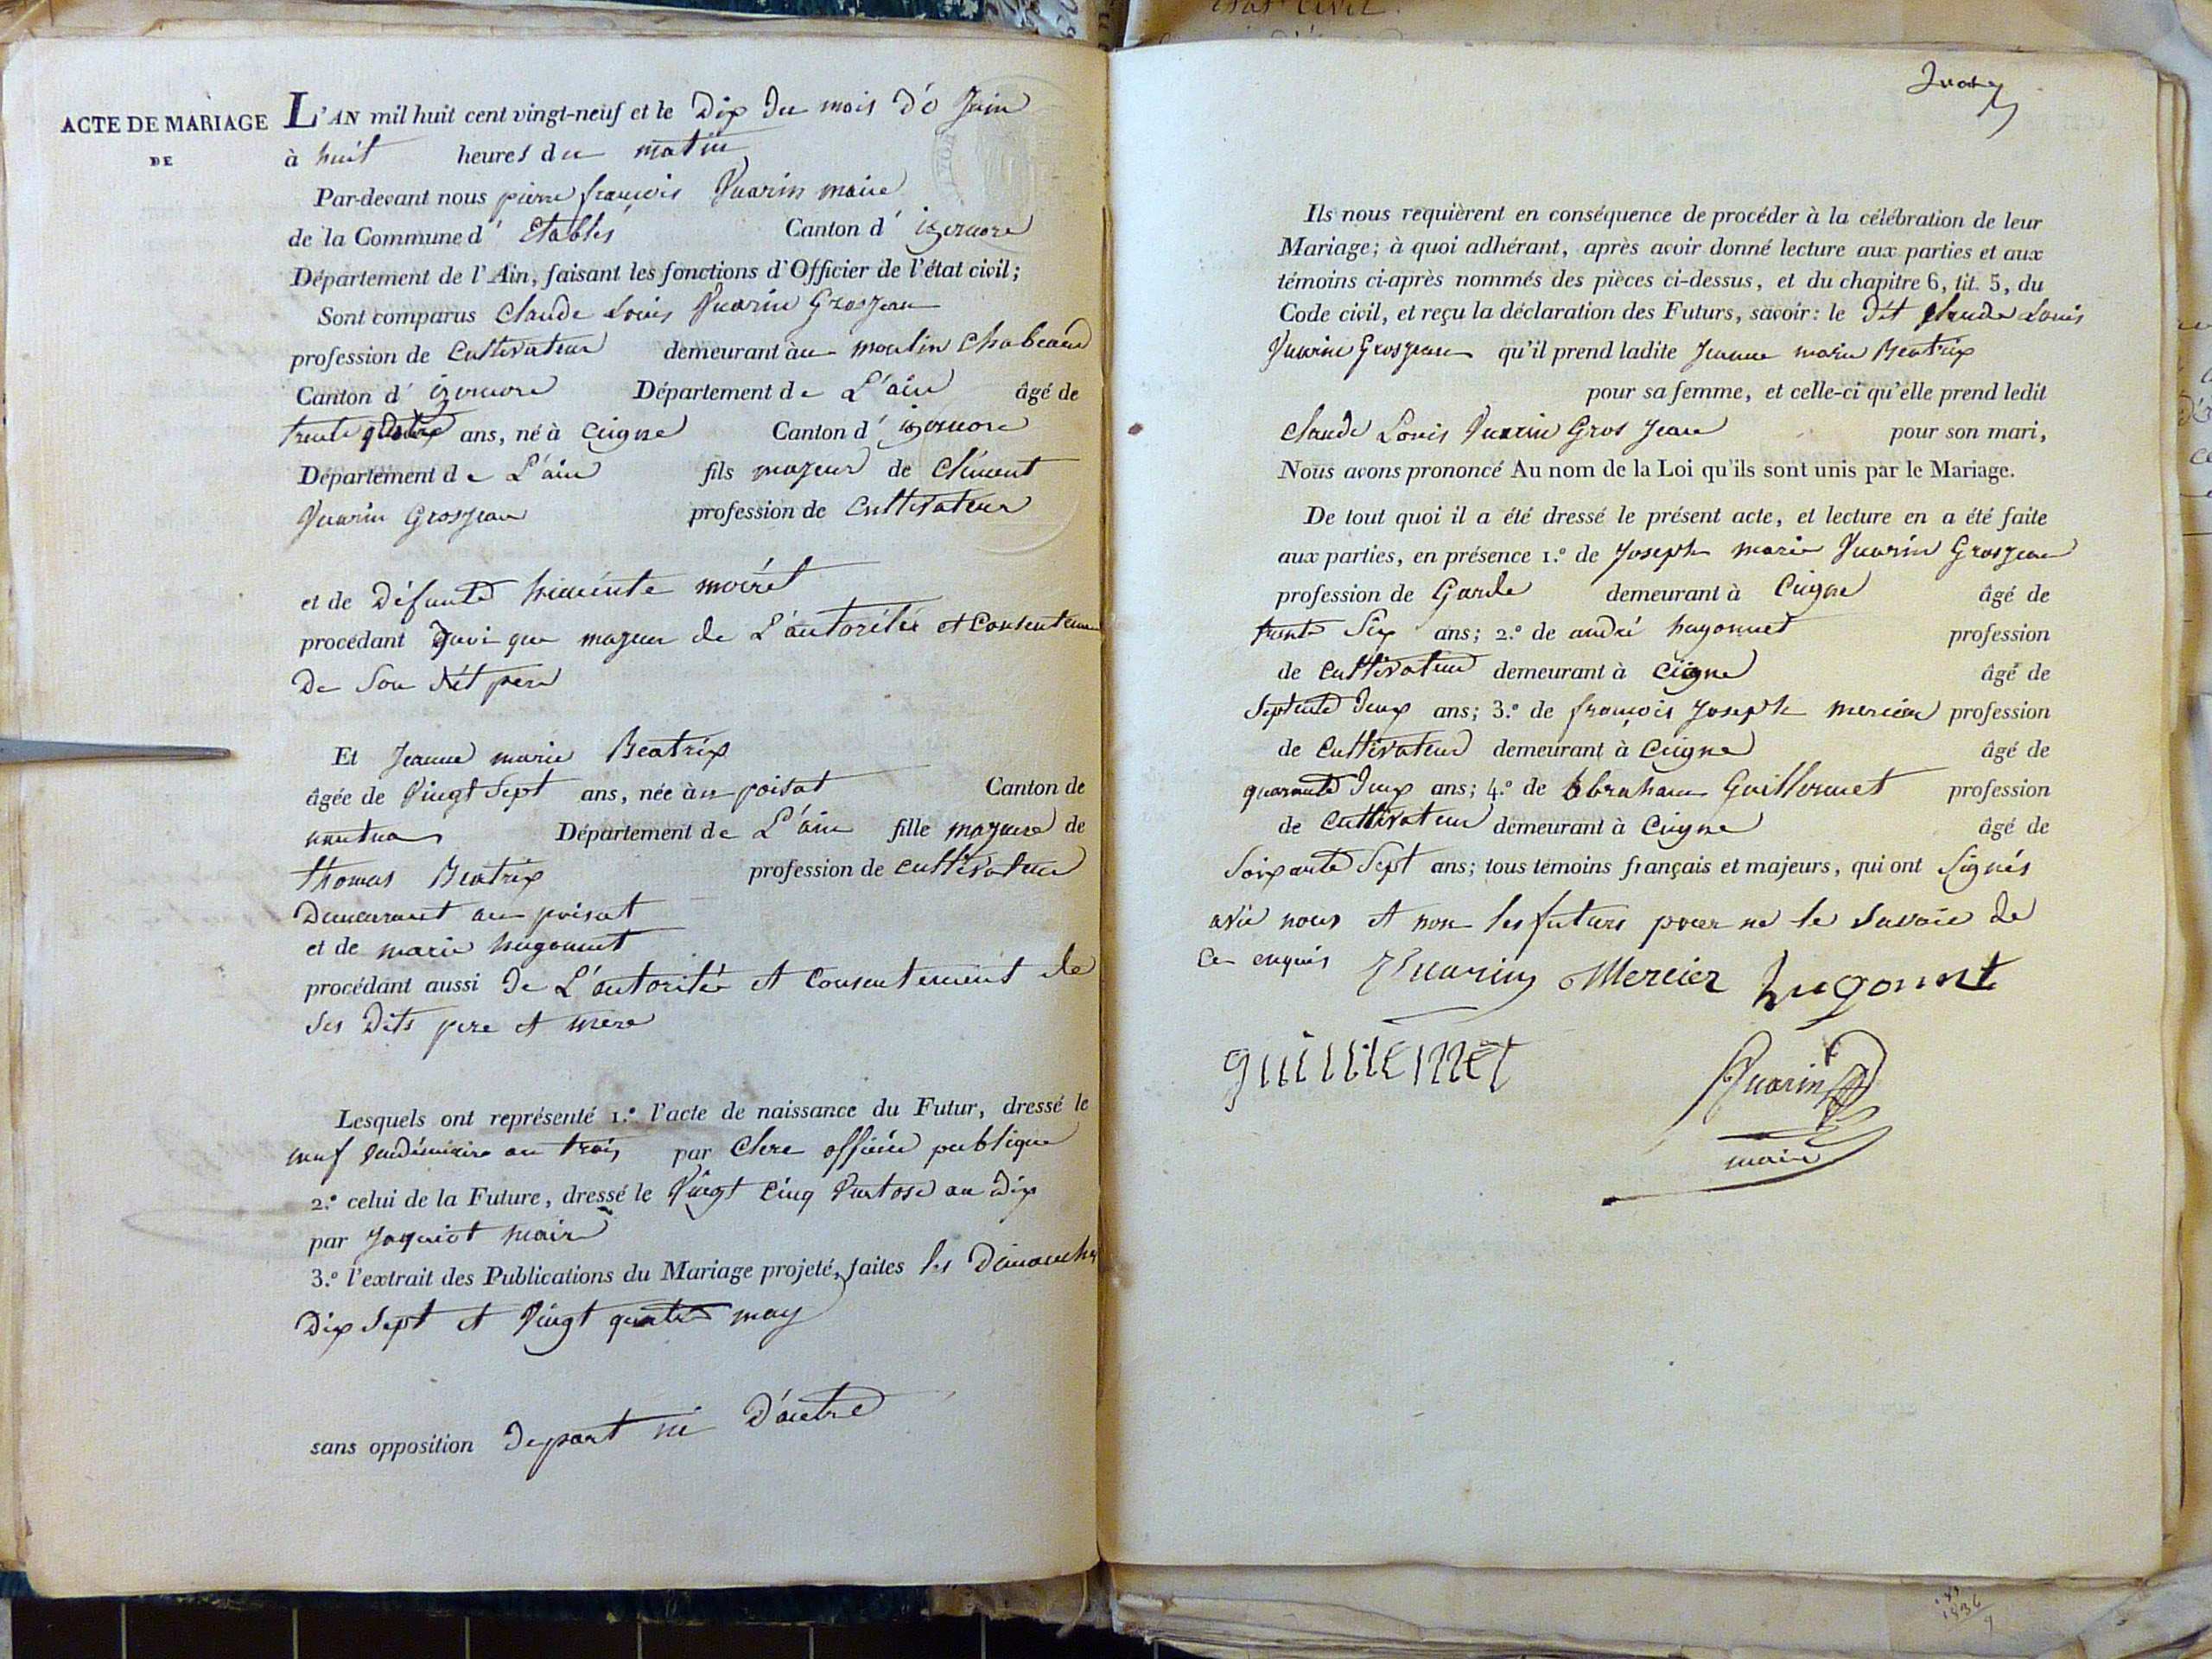 ACTE DE MARIAGE
DE
L'AN mil huit cent vingt-neuf et le Dix du mois de Juin
à huit heures du matin
Par-devant nous pierre françois Vuarin maire
de la Commune d' Etables Canton d' izernore
Département de l'Ain, faisant les fonctions d'Officier de l'état civil;
Sont comparus Claude Louis Vuarin Grosjean
profession de Cultivateur demeurant au moulin Chabeaud
Canton d' izernore Département de L'ain âgé de
trente quatre ans, né à Ceigne Canton d' izernore
Département de L'ain fils majeur de Clément
Vuarin Grosjean profession de Cultivateur
et de Défunte hiacinte moiret
procédant quoi que majeur de L'autorité et Consenteme
De Son dit pere
Et Jeanne marie Beatrix
âgée de Vingt Sept ans, née au poisat Canton de
nantua Département de L'ain fille majeure de
thomas Beatrix profession de cultivateur
Demeurant au poisat
et de marie hugonnet
procédant aussi de L'autorité et Consentement de
Ses Dits pere et mere
Lesquels ont représenté 1.° l'acte de naissance du Futur, dressé le
neuf vendémiaire an trois par Clere officié publique
2.° celui de la Future, dressé le Vingt Cinq Vantose an dix
par Jaquiot maire
3.° l'extrait des Publications du Mariage projeté, faites les Dimanches
Dix Sept et Vingt quatre may
sans opposition de part ni D'autre
Ils nous requièrent en conséquence de procéder à la célébration de leur
Mariage; à quoi adhérant, après avoir donné lecture aux parties et aux
témoins ci-après nommés des pièces ci-dessus, et du chapitre 6, tit. 5, du
Code civil, et reçu la déclaration des Futurs, savoir: le dit Claude Louis
Vuarin Grosjean qu'il prend ladite Jeanne marie Beatrix
pour sa femme, et celle-ci qu'elle prend ledit
Claude Louis Vuarin Gros Jean pour son mari,
Nous avons prononcé Au nom de la Loi qu'ils sont unis par le Mariage.
De tout quoi il a été dressé le présent acte, et lecture en a été faite
aux parties, en présence 1.° de Joseph marie Vuarin Grosjean
profession de Garde demeurant à Ceigne âgé de
trente Six ans; 2.° de andré hugonnet profession
de Cultivateur demeurant à Ceigne âgé de
Septente deux ans; 3.° de françois Joseph mercier profession
de Cultivateur demeurant à Ceigne âgé de
quarante deux ans; 4.° de abraham Guillermet profession
de Cultivateur demeurant à Ceigne âgé de
Soixante Sept ans; tous témoins français et majeurs, qui ont Signés
avec nous et non les futurs pour ne le Savoir de
Ce enquis Vuarin Mercier hugonnet
guillermet
Vuarin
maire